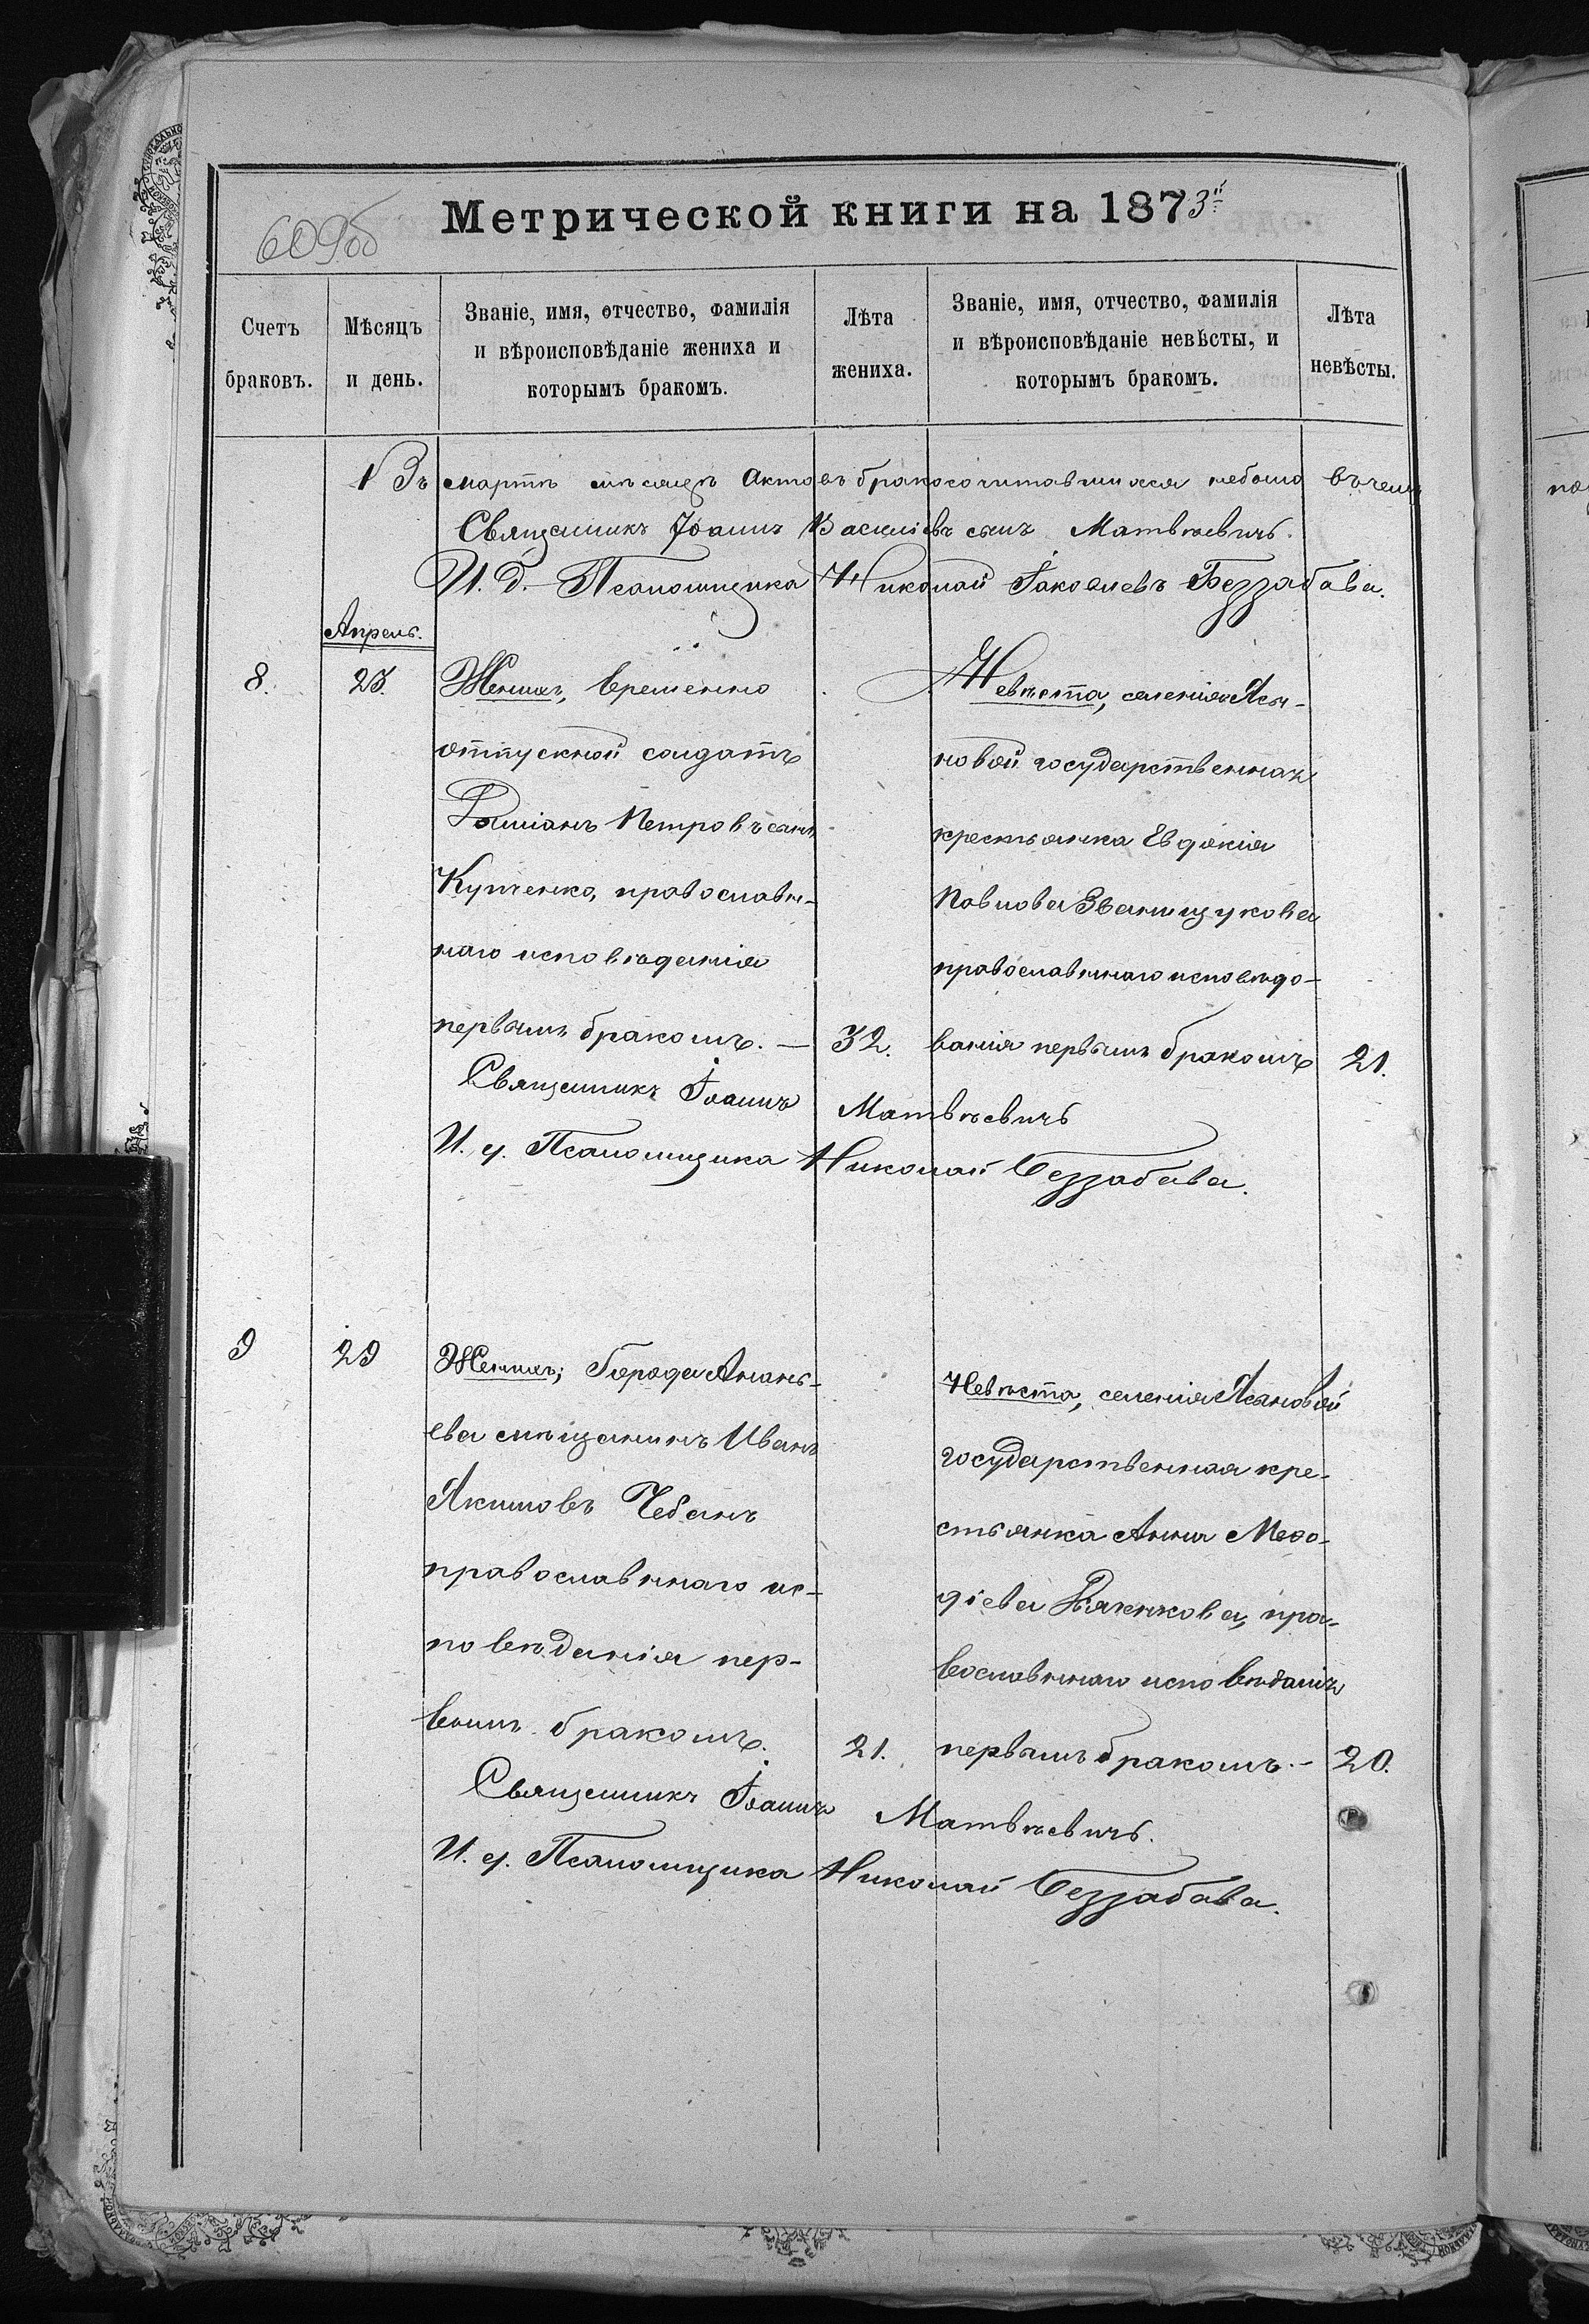 609об
Метрической книги на 1873й
Счетъ браковъ.
Мѣсяцъ и день.
Званіе, имя, отчество, фамилія
и вѣроисповѣданіе жениха и
которымъ бракомъ.
Лѣта жениха.
Званіе, имя, отчество, фамилія
и вѣроисповѣданіе невѣсты, и
которымъ бракомъ.
Лѣта невѣсты.
Въ мартѣ мѣсяцѣ актовъ бракосочитавшихся небыло въ чемъ
Священникъ Іоаннъ Василіевъ сынъ Матвѣевичъ.
И. д. Псаломщика Николай Іаковлевъ Беззабава.
Апрель.
8.
Женихъ, временно
отпускной солдатъ
Петровъ сынъ
Купченко, православн-
наго исповѣданія
первымъ бракомъ. —
32.
Невѣста, селенія Ясы-
новой государственная
крестьянка Евдокія
Павлова Званщукова
православннаго исповѣдо-
ванія первымъ бракомъ
21.
Священникъ Іоаннъ Матвѣевичъ
И. д. Псаломщика Николай Беззабава.
9
29
Женихъ; Города Анань-
ева мѣщанинъ Иванъ
Якимовъ Чебанъ
православннаго ис-
повѣданія пер-
вымъ бракомъ.
21.
Невѣста, селенія Ясыновой
государственная кре-
стьянка Анна Меѳо-
діева пра-
вославннаго исповѣданія
первымъ бракомъ. -
20.
Священникъ Іоаннъ Матвѣевичъ.
И. д. Псаломщика Николай Беззабава.